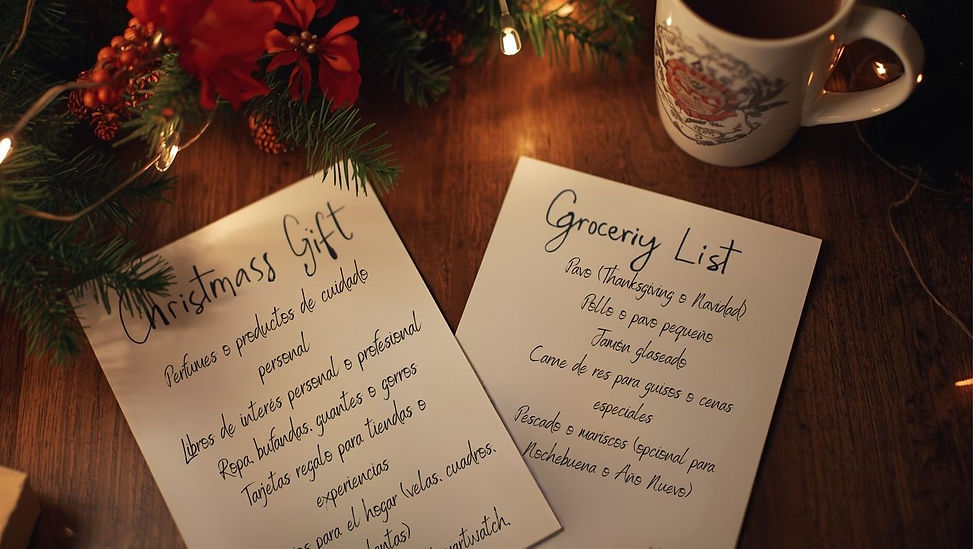 Christmass Gift
Perfumes o productos de cuidado
personal
Libros de interés personal o profesional
Ropa, bufandas, guantes o gorros
Tarjetas regalo para tiendas o
experiencias
para el hogar (velas, cuadros,
Groceriy List
Pavo (Thanksgiving o Navidad)
Pollo o pavo pequeño
Jamón glaseado
Carne de res para guisos o cenas
especiales
Pescado o mariscos (opcional para
Nochebuena o Año Nuevo)